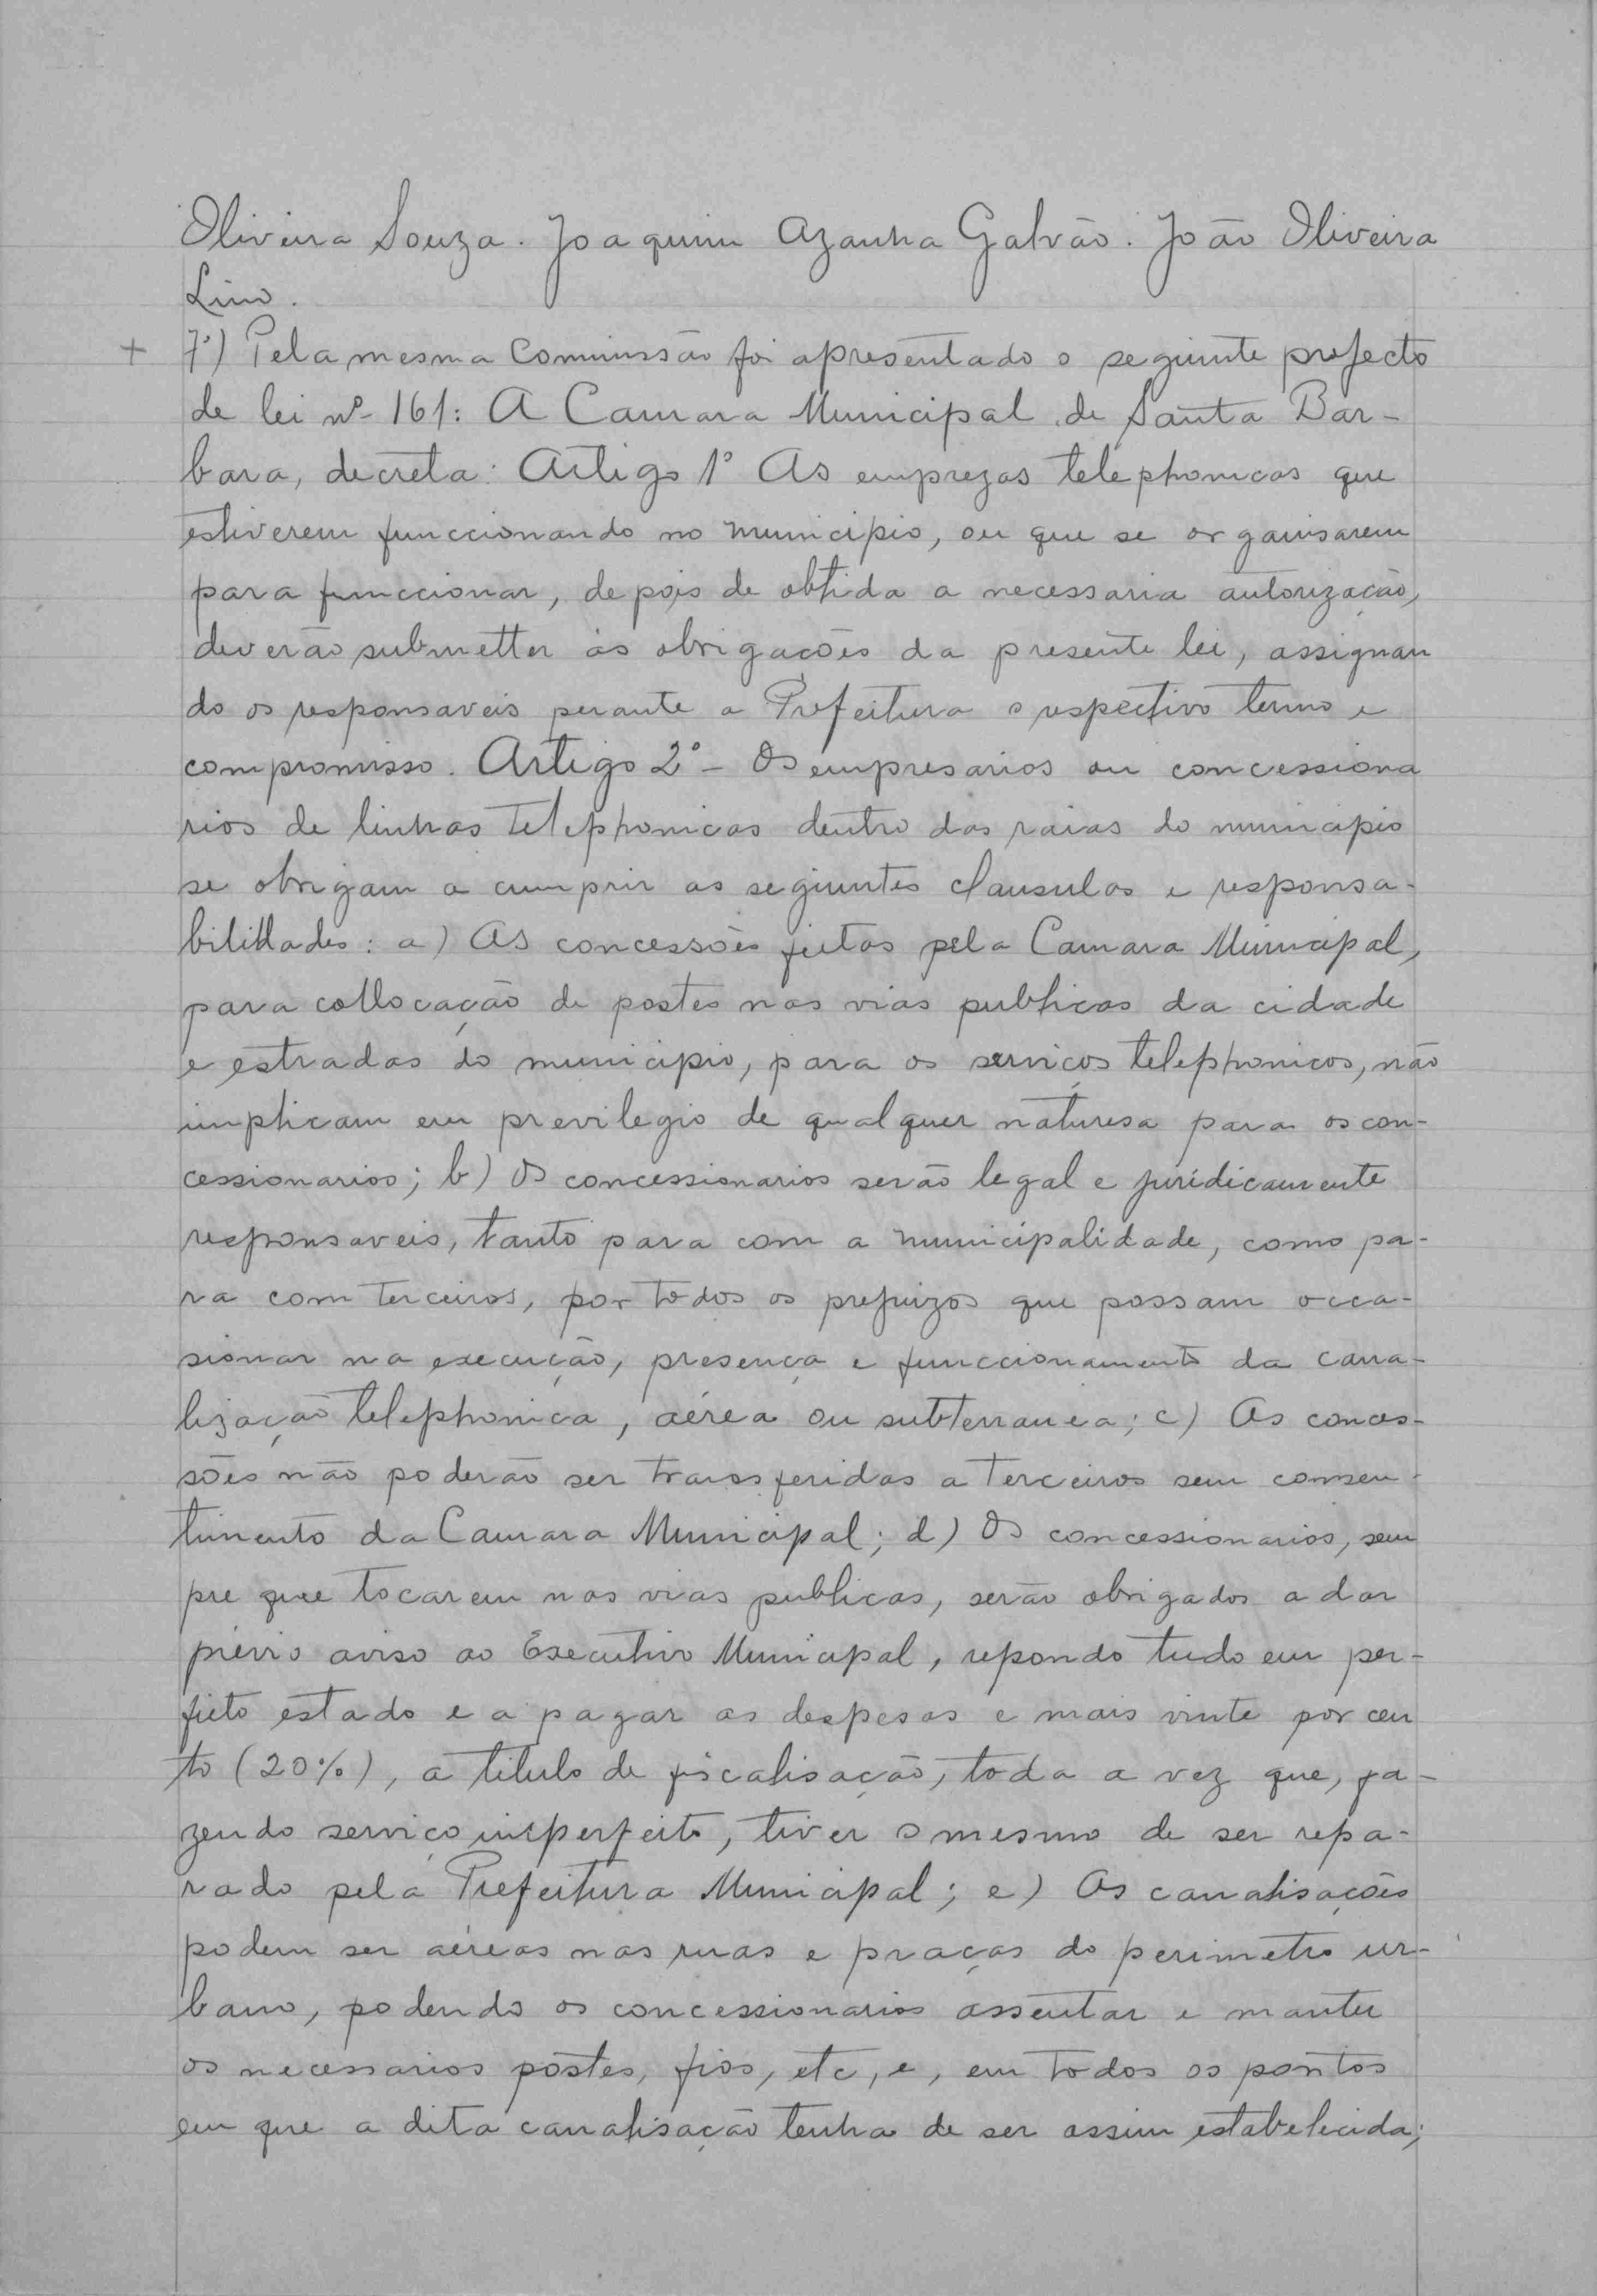 Oliveira Souza. Joaquim Azanha Galvão. João Oliveira
Lino.
+ 7º) Pela mesma Commissão foi apresentado o seguinte projecto
de lei nº 161: A Camara Municipal de Santa Bar-
bara, decreta: Artigo 1º As emprezas telephonicas que
estiverem funccionando no municipio, ou que se organisarem
para funccionar, depois de obtida a necessaria autorização,
deverão submetter ás obrigações da presente lei, assignan
do os responsaveis perante a Prefeitura o respectivo termo e
compromisso. Artigo 2º - Os empresarios ou concessiona
rios de linhas telephonicas dentro das raias do municipio
se obrigam a cumprir as seguintes clausulas e responsa-
bilidades: a) As concessões feitas pela Camara Municipal,
para collocação de postes nas vias publicas da cidade
e estradas do municipio, para os serviços telephonicos, não
implicam em previlegio de qualquer naturesa para os con-
cessionarios; b) Os concessionarios serão legal e juridicamente
responsaveis, tanto para com a municipalidade, como pa-
ra com terceiros, por todos os prejuizos que possam occa-
sionar na execução, presença e funccionamento da cana-
lização telephonica, aérea ou subterranea; c) As conces-
sões não poderão ser transferidas a terceiros sem consen-
timento da Camara Municipal; d) Os concessionarios, sem
pre que tocarem nas vias publicas, serão obrigados a dar
prévio aviso ao Executivo Municipal, repondo tudo em per-
feito estado e a pagar as despesas e mais vinte por cen
to (20%), a titulo de fiscalisação, toda a vez que, fa-
zendo serviço imperfeito, tiver o mesmo de ser repa-
rado pela Prefeitura Municipal; e) As canalisações
podem ser aéreas nas ruas e praças do perimetro ur-
bano, podendo os concessionarios assentar e manter
os necessarios postes, fios, etc, e, em todos os pontos
em que a dita canalisação tenha de ser assim estabelecida;